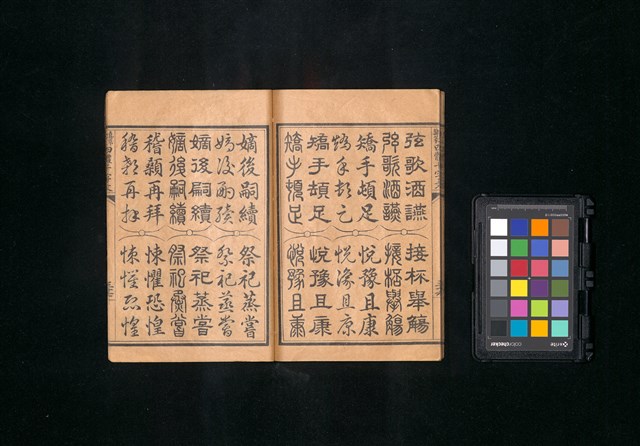 弦歌酒讌 接杯舉觴
弦歌酒讌 接杯舉觴
矯手頓足 悅豫且康
矯手頓足 悅豫且康
矯手頓足 悅豫且康
矯手頓足 悅豫且康
嫡後嗣續 祭祀蒸嘗
嫡後嗣續 祭祀蒸嘗
嫡後嗣續 祭祀蒸嘗
嫡後嗣續 祭祀蒸嘗
稽顙再拜 悚懼恐惶
稽顙再拜 悚懼恐惶
x-rite colorchecker